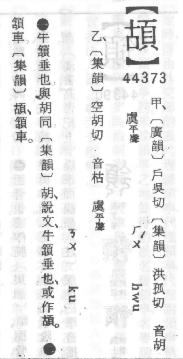 【䪴】
44373
甲、〔廣韻〕戶吳切〔集韻〕洪孤切 音胡
虞平聲 ㄏㄨˊ hwu
乙、〔集韻〕空胡切 音枯 虞平聲
ㄎㄨ ku
●牛頷垂也、與胡同。〔集韻〕胡、說文、牛頷垂也、或作䪴。●
頷車。〔集韻〕䪴、頷車。